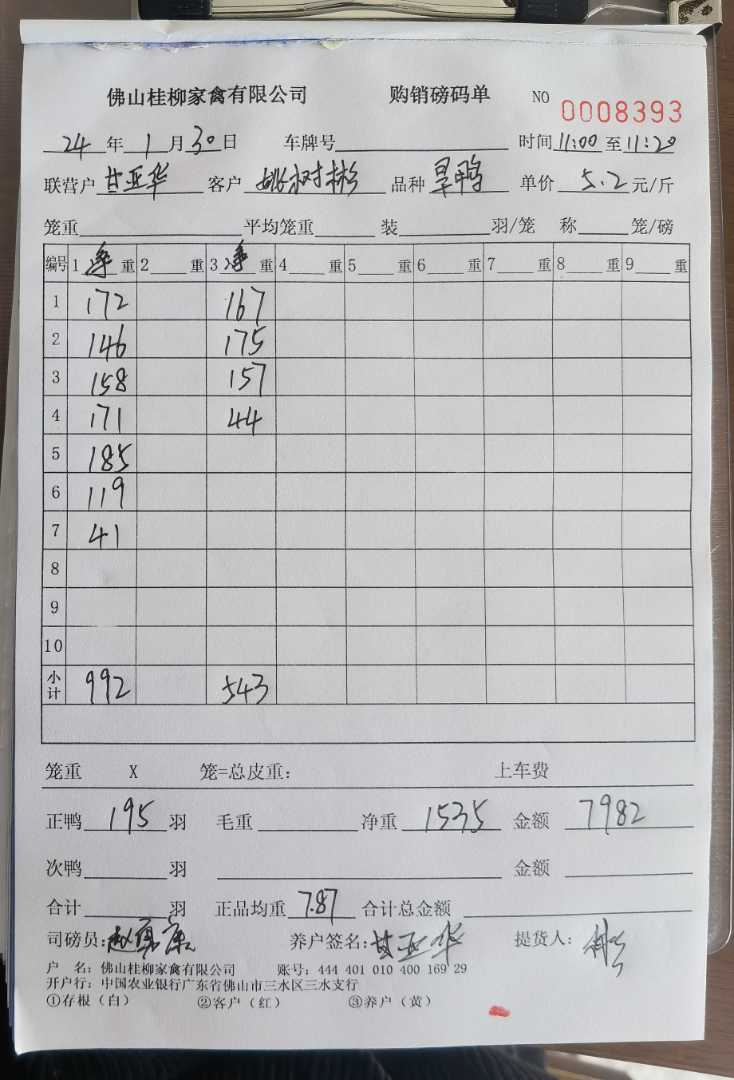 佛山桂柳家禽有限公司 购销磅码单 NO 0008393
24 年 1 月 30 日 车牌号 时间 11:00 至 11:20
联营户 甘亚华 客户 姚树彬 品种 旱鸭 单价 5.2 元/斤
笼重 平均笼重 装 羽/笼 称 笼/磅
编号 1 净 重 2 重 3 净 重 4 重 5 重 6 重 7 重 8 重 9 重
1 172 167
2 146 175
3 158 157
4 171 44
5 185
6 119
7 41
8
9
10
小计 992 543
笼重 X 笼=总皮重: 上车费
正鸭 195 羽 毛重 净重 1535 金额 7982
次鸭 羽 金额
合计 羽 正品均重 7.87 合计总金额
司磅员: 养户签名: 甘亚华 提货人:
户 名: 佛山桂柳家禽有限公司 账号: 444 401 010 400 169 29
开户行: 中国农业银行广东省佛山市三水区三水支行
①存根（白） ②客户（红） ③养户（黄）